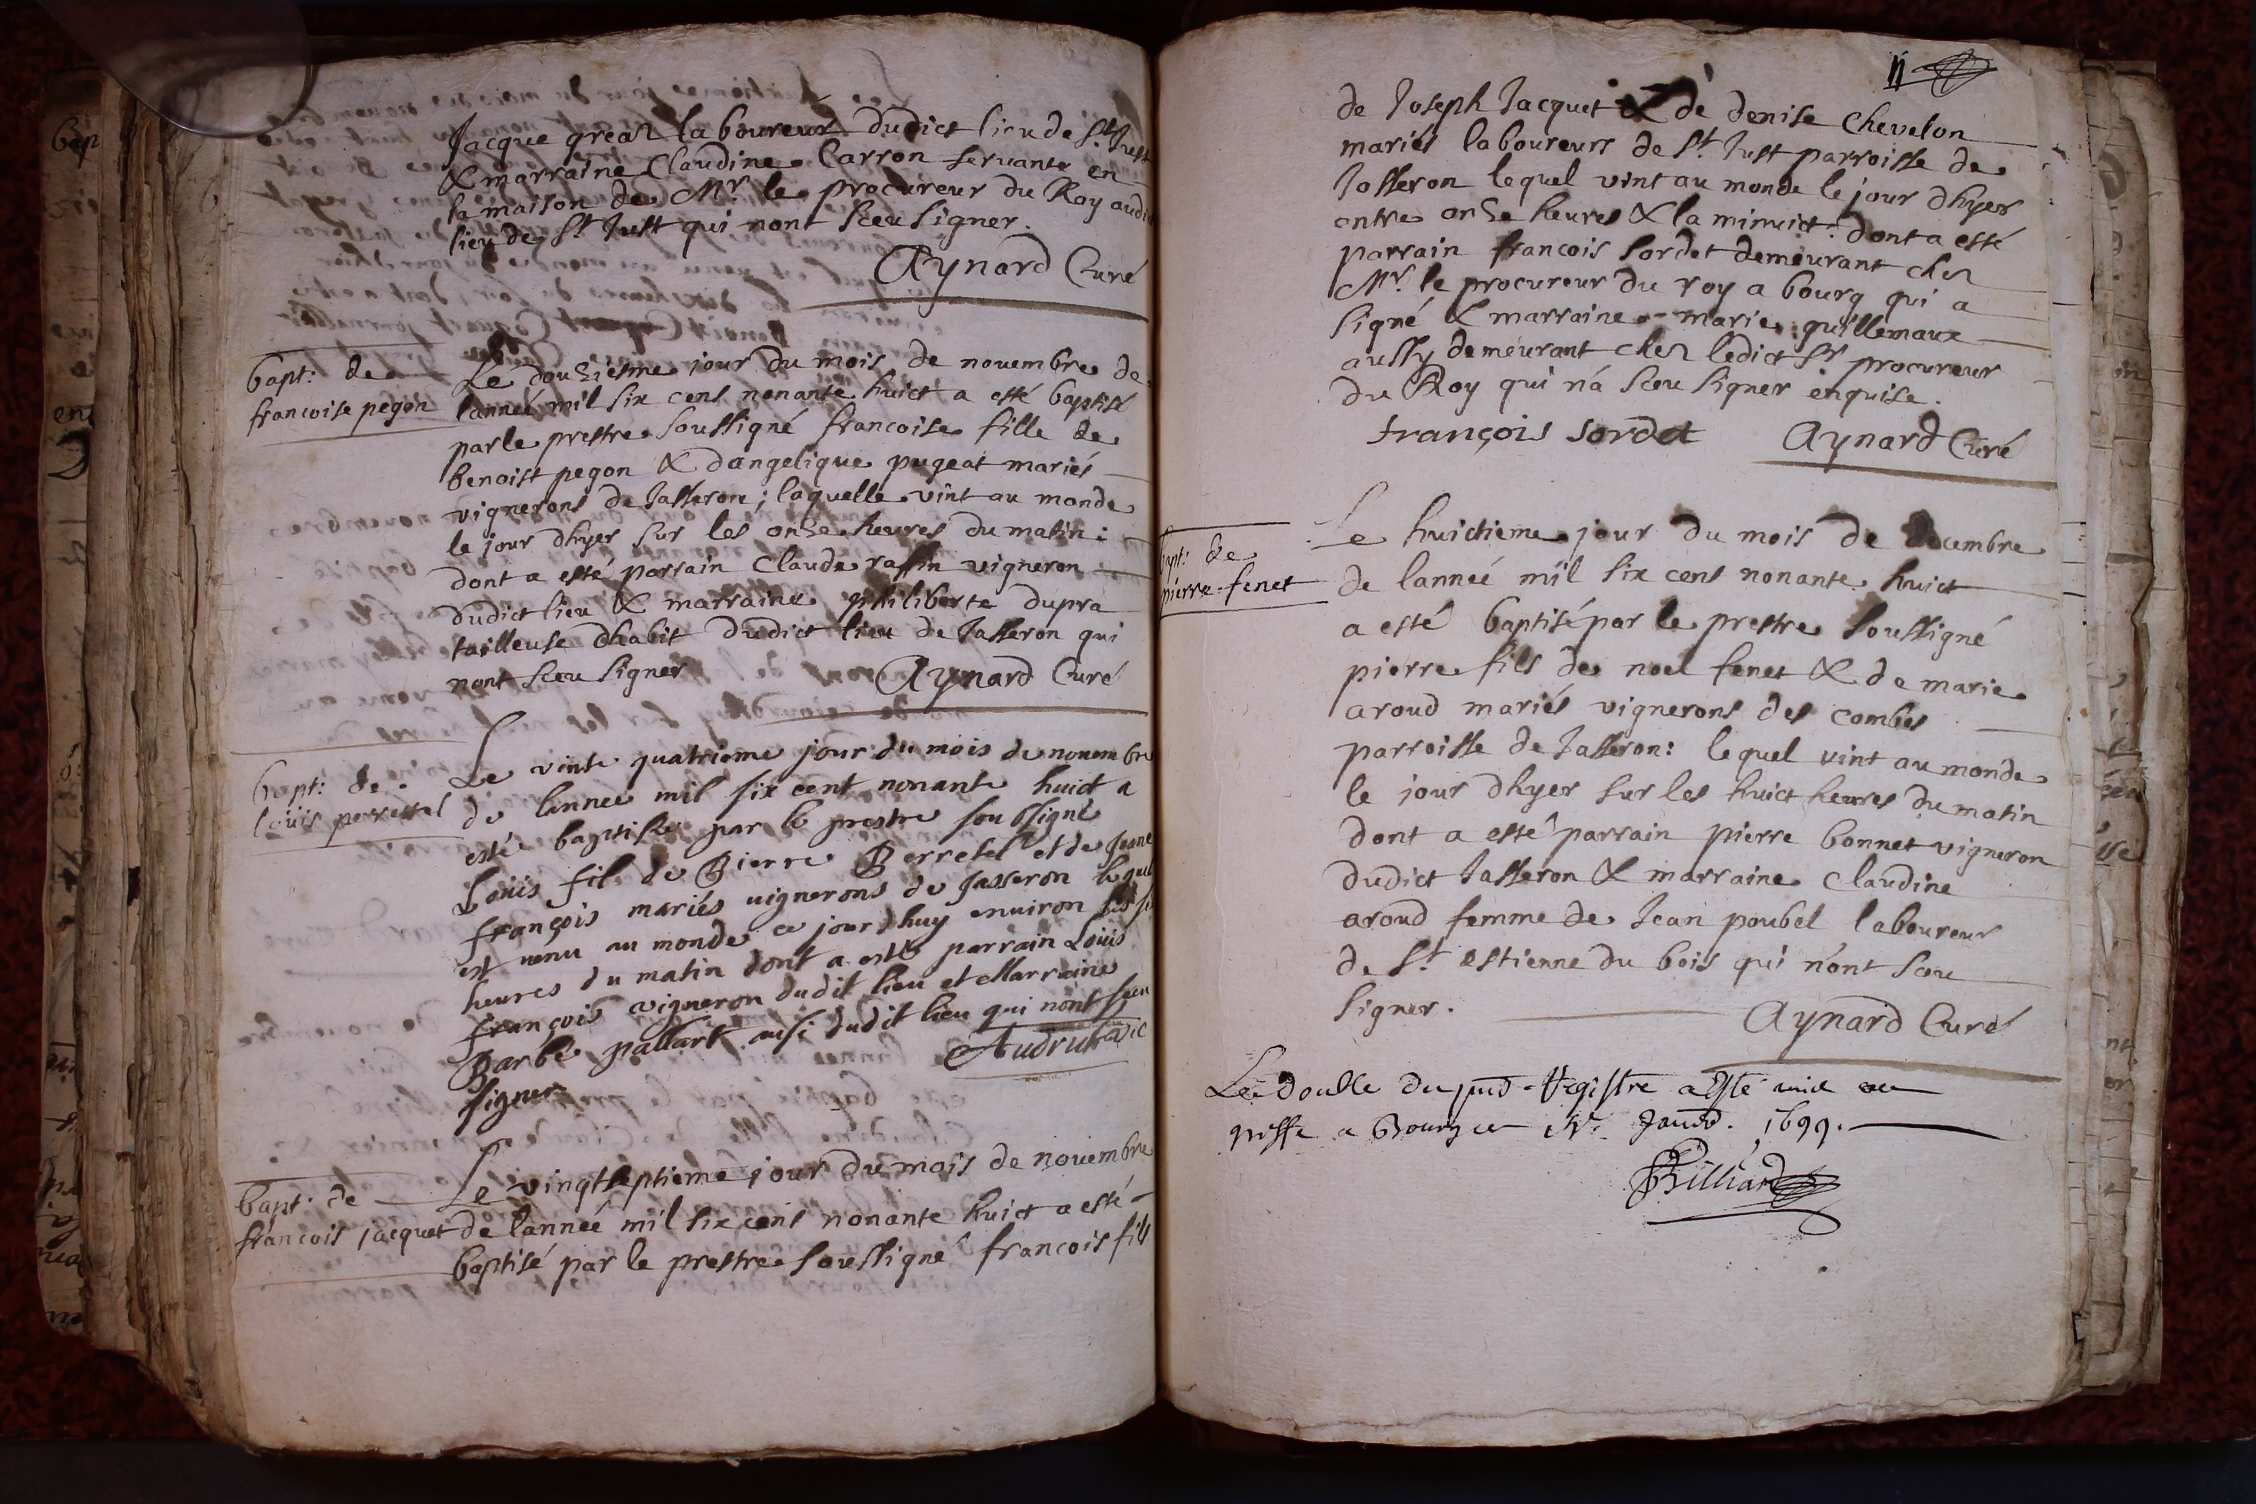 Jacque greaz laboureur dudict lieu de St Just
& marraine Claudine Carron servante en
la maison de Mr. le procureur du Roy audit
lieu de St Just qui nont sceu signer.
Aynard Curé
bapt: de
francoise pegon
Le douziesme jour du mois de novembre de
lanneé mil six cens nonante huict a esté baptisé
par le prestre soussigné francoise fille de
benoist pegon & dangelique pugeat mariés
vignerons de Jasseron; laquelle vint au monde
le jour dhyer sur les onze heures du matin:
dont a esté parrain Claude raffin vigneron
dudict lieu & marraine philiberte dupra
tailleuse dhabit dudict lieu de Jasseron qui
nont sceu signer
Aynard Curé
bapt: de
loüis perrettel
Le vinte quatrieme jour du mois de novembre
de lannee mil six cent nonante huict a
esté baptise par le prestre soubsigné
Loüis fil de Pierre Perretel et de Jeane
françois mariés vignerons de Jasseron lequel
est venu au monde ce jourdhuy environ les
heures du matin dont a esté parrain Loüis
françois vigneron dudit lieu et Marraine
Barbe pallart ausi dudit lieu qui nont sceu
signer
bapt: de
francois jacquet
Le vingtseptieme jour du mois de novembre
de lanneé mil six cens nonante huict a esté
baptisé par le prestre soussigné francois fils
11
de Joseph Jacquet & de denise Chevelon
mariés laboureurs de St. Just parroisse de
Jasseron lequel vint au monde le jour dhyer
entre onze heures & la minuict: dont a esté
parrain francois sordet demeurant chez
Mr. le procureur du roy a bourg qui a
signé & marraine marie guillemaux
aussy demeurant chez ledict Sr procureur
du Roy qui n'a sceu signer enquise.
françois sordet Aynard Curé
bapt: de
pierre fenet
Le huictieme jour du mois de decembre
de lanneé mil six cens nonante huict
a esté baptisé par le prestre soussigné
pierre fils de noel fenet & de marie
aroud mariés vignerons des combes
parroisse de Jasseron: lequel vint au monde
le jour dhyer sur les huict heures du matin
dont a esté parrain pierre bonnet vigneron
dudict Jasseron & marraine claudine
aroud femme de Jean poubel laboureur
de St. estienne du bois qui n'ont sceu
signer.
Aynard Curé
Le doulle du pnt Registre a Esté mis au
greffe a Bourg ce Janv. 1699.
Billiard